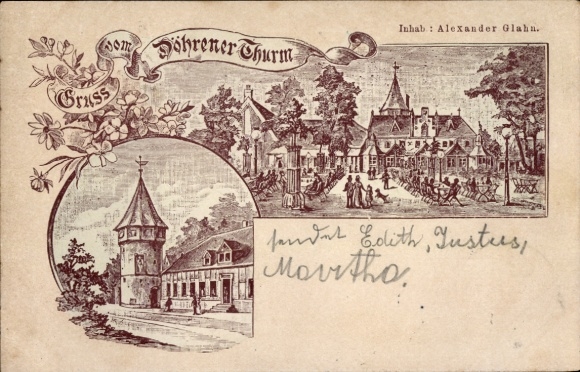 Gruss vom Döhrener Thurm
Inhab: Alexander Glahn.
sendet Edith, Justus,
Martha.